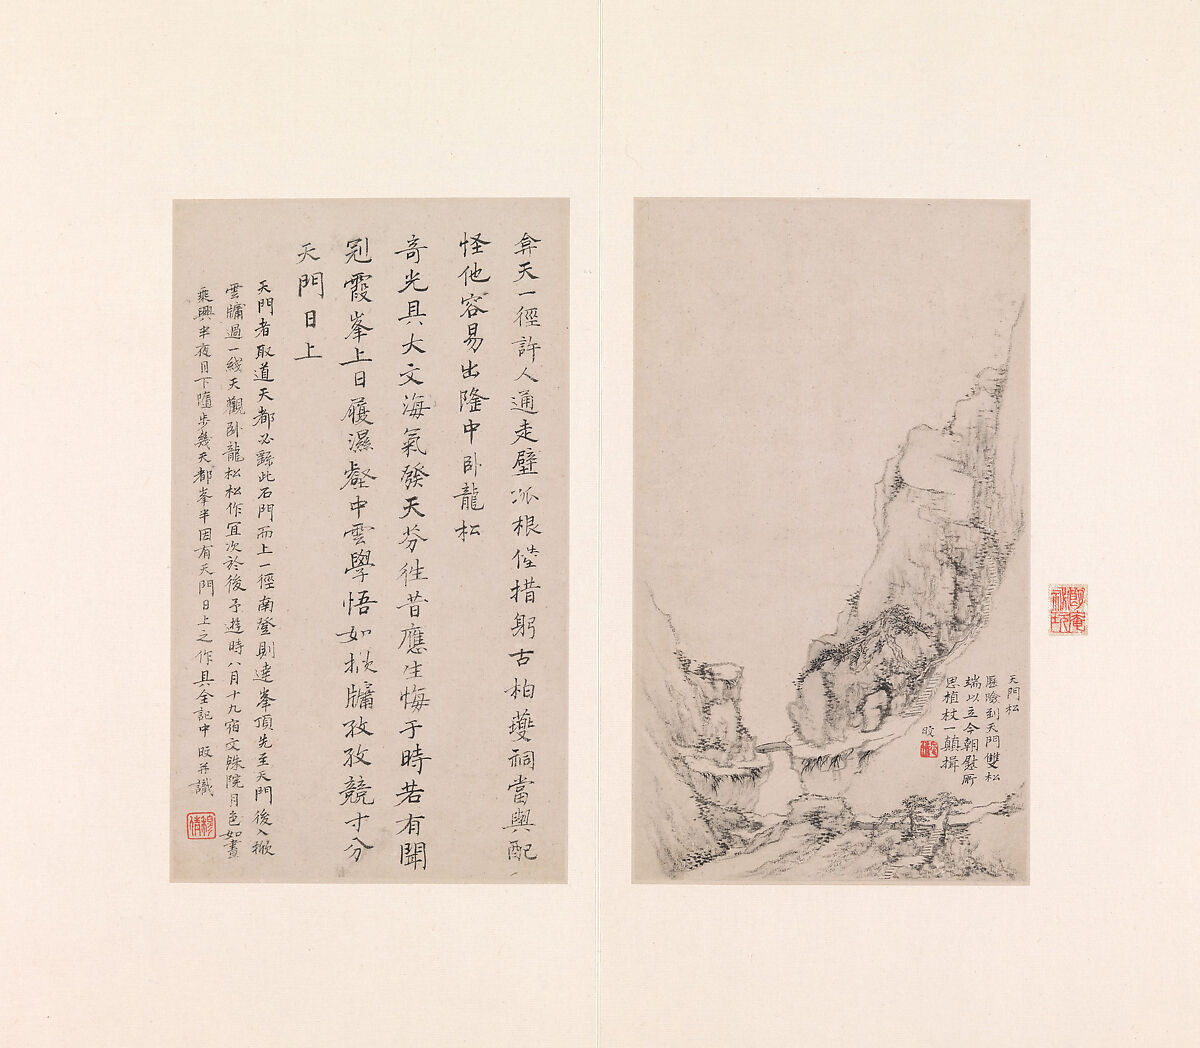 天門松
歷險到天門雙松
端以立今朝慰所
思植杖一顛揖
旼
弇天一徑許人通走壁孤根倚措躬古柏夔祠當與配
怪他容易出隆中卧龍松
奇光具大文海氣發天芬往昔應生悔于時若有聞
冠霞峯上日履濕壑中雲學悟如牖孜孜競寸分
天門日上
天門者取道天都必繇此石門而上一徑南登則達峯頂先至天門後入
雲牖過一綫天觀卧龍松松作宜次於後予遊時八月十九宿文殊院月色如晝
乘興半夜月下隨步幾天都峯半因有天門日上之作具全記中旼并識